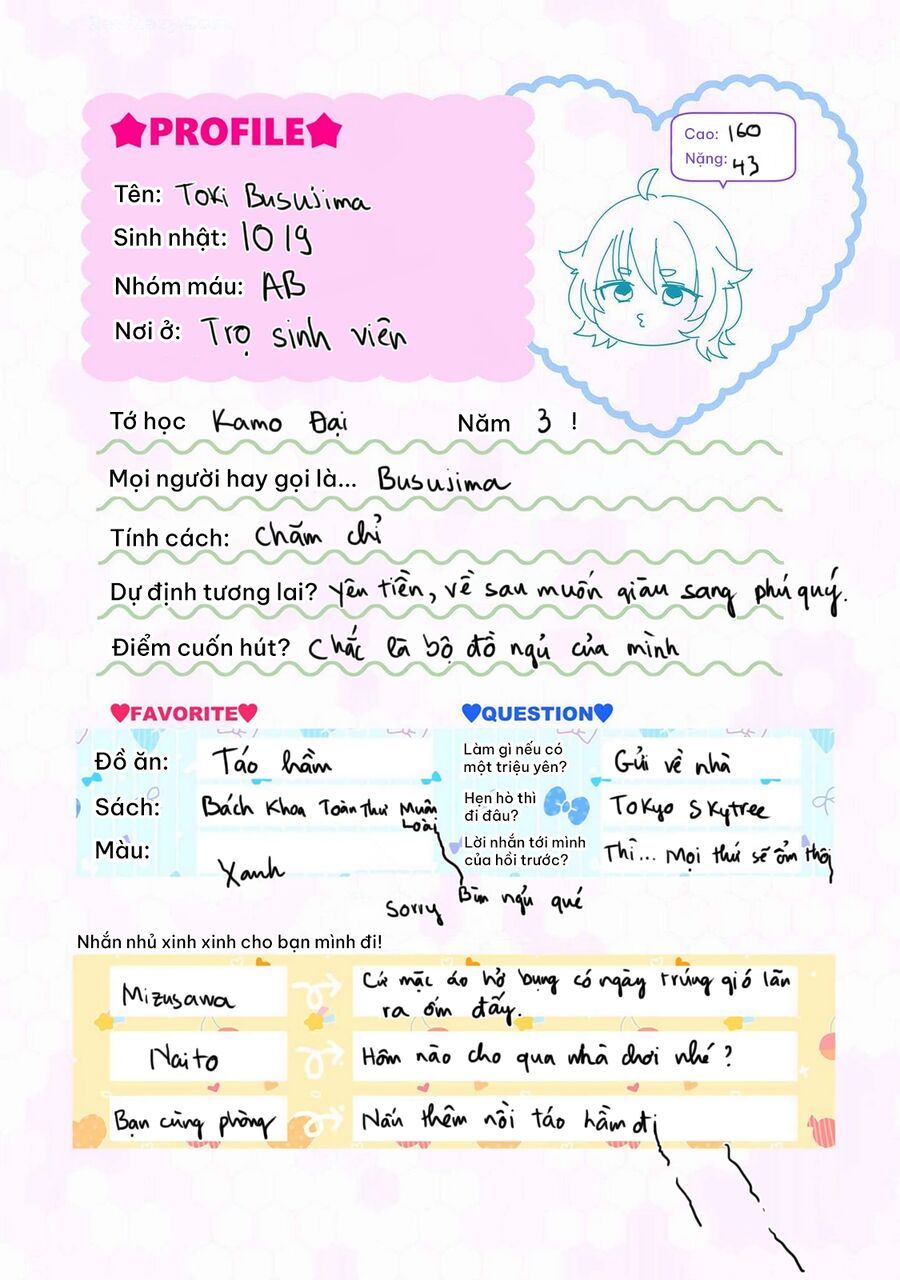 ★PROFILE★
Cao: 160
Nặng: 43
Tên: Toki Busujima
Sinh nhật: 1019
Nhóm máu: AB
Nơi ở: Trọ sinh viên
Tớ học Kamo Đại Năm 3 !
Mọi người hay gọi là... Busujima
Tính cách: Chăm chỉ
Dự định tương lai? Yên tiền, về sau muốn giàu sang phú quý.
Điểm cuốn hút? Chắc là bộ đồ ngủ của mình
♥FAVORITE♥
Đồ ăn: Táo hầm
Sách: Bách Khoa Toàn Thư Muôn
Loài
Màu: Xanh
♥QUESTION♥
Làm gì nếu có
một triệu yên? Gửi về nhà
Hẹn hò thì
đi đâu? Tokyo Skytree
Lời nhắn tới mình
của hồi trước? Thì... Mọi thứ sẽ ổn thôi
Sorry Bùn ngủ qué
Nhắn nhủ xinh xinh cho bạn mình đi!
Mizusawa
Cứ mặc áo hở bụng có ngày trúng gió lăn
ra ốm đấy.
Naito
Hôm nào cho qua nhà chơi nhé?
Bạn cùng phòng
Nấu thêm nồi táo hầm đi